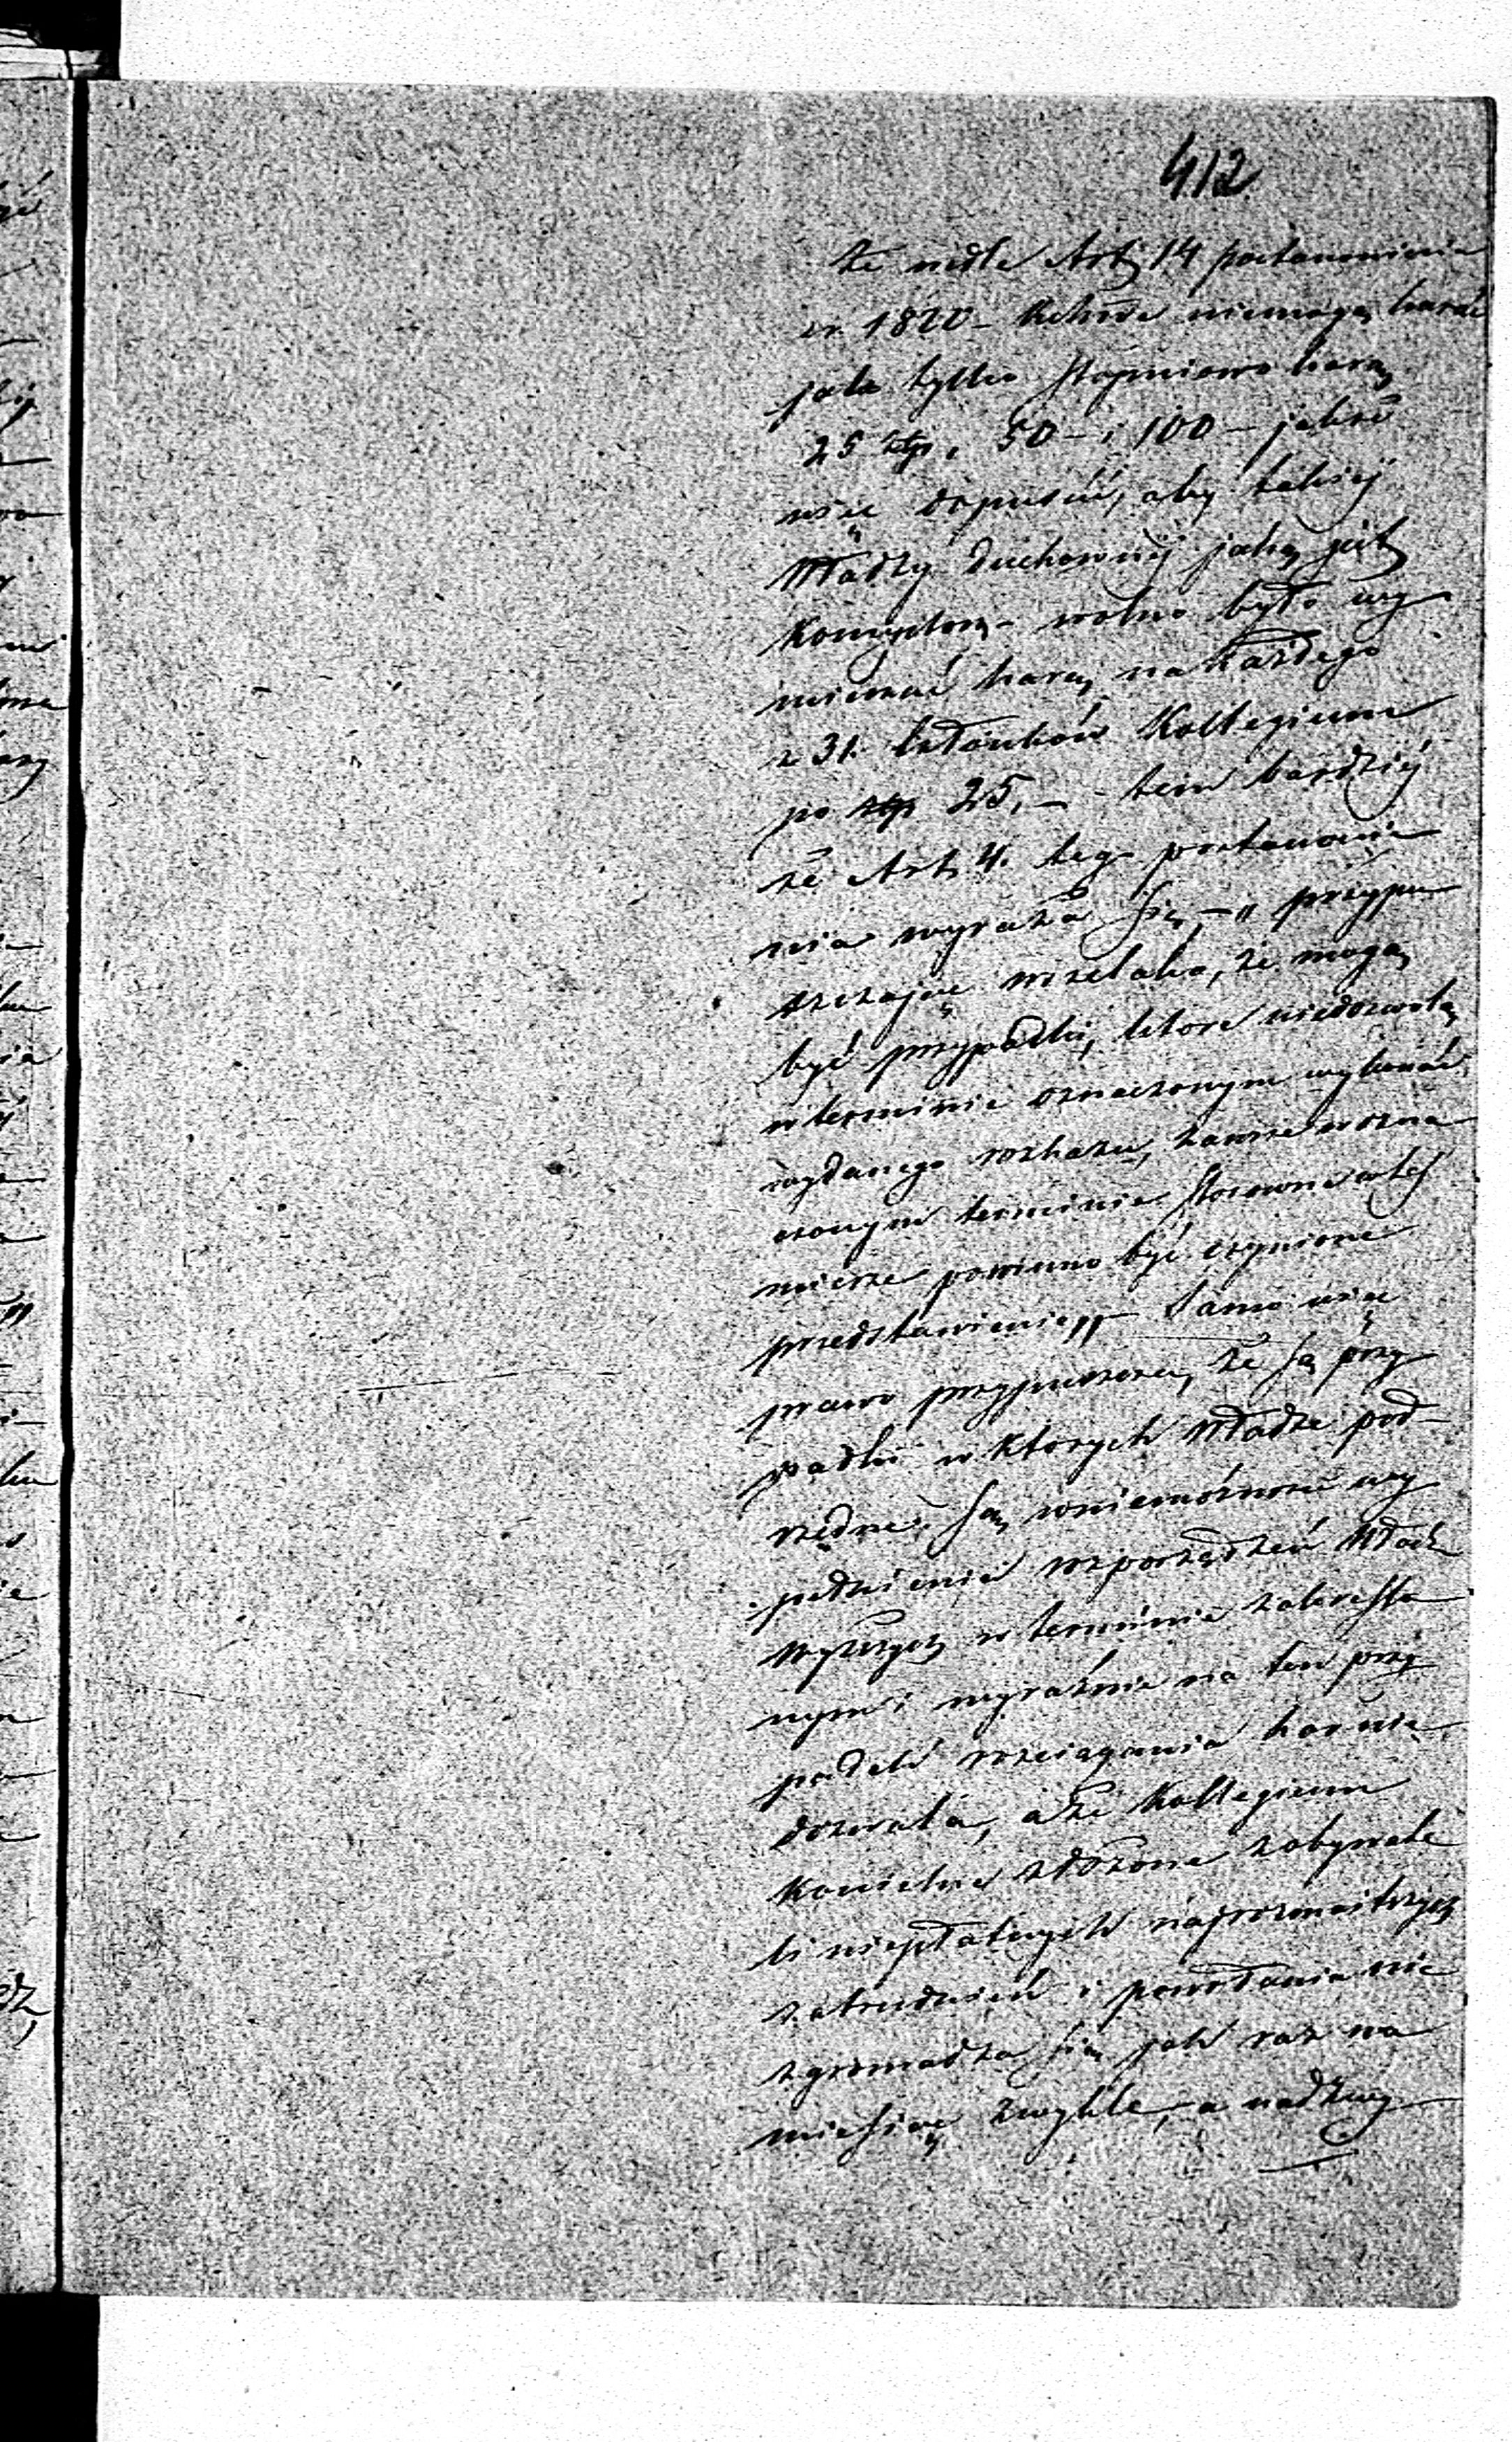 412
że wedle Art 14 postanowienia
z r. 1820 - niemogą karać
jak tylko stopniowo karą
25 złp, 50 - i 100 - jakże
więc dopuścić, aby takiéj
Władzy duchownéj jaką jest
Konsystorz - wolno było wy
mierzać karę na każdego
z 31. członków Kollegium
po złp 25. - tem bardziéj
że Art 4. tego postanowie
nia wyraża się - „przypu
szczając wszelako, że mogą
być przypadki, które niedozwolą
w terminie oznaczonym wykonać
wydanego rozkazu, zawsze w ozna
czonym terminie stosowne w téj
mierze powinno być czynione
przedstawienie" - Samo więc
prawo przypuszcza, że są przy
padki w których Władze pod-
rzędne, są w niemożności wy
pełnienia rozporządzeń Władz
Wyższych w terminie zakreślo
nym i wyraźnie na ten przy
padek rozciągania kar nie
dozwala, a że Kollegium
Kościelne złożone z obywate
li niepłatnych najrozmaitszych
zatrudnień i powołania nie
zgromadza się jak raz na
miesiąc zwykle, - a nadzwy